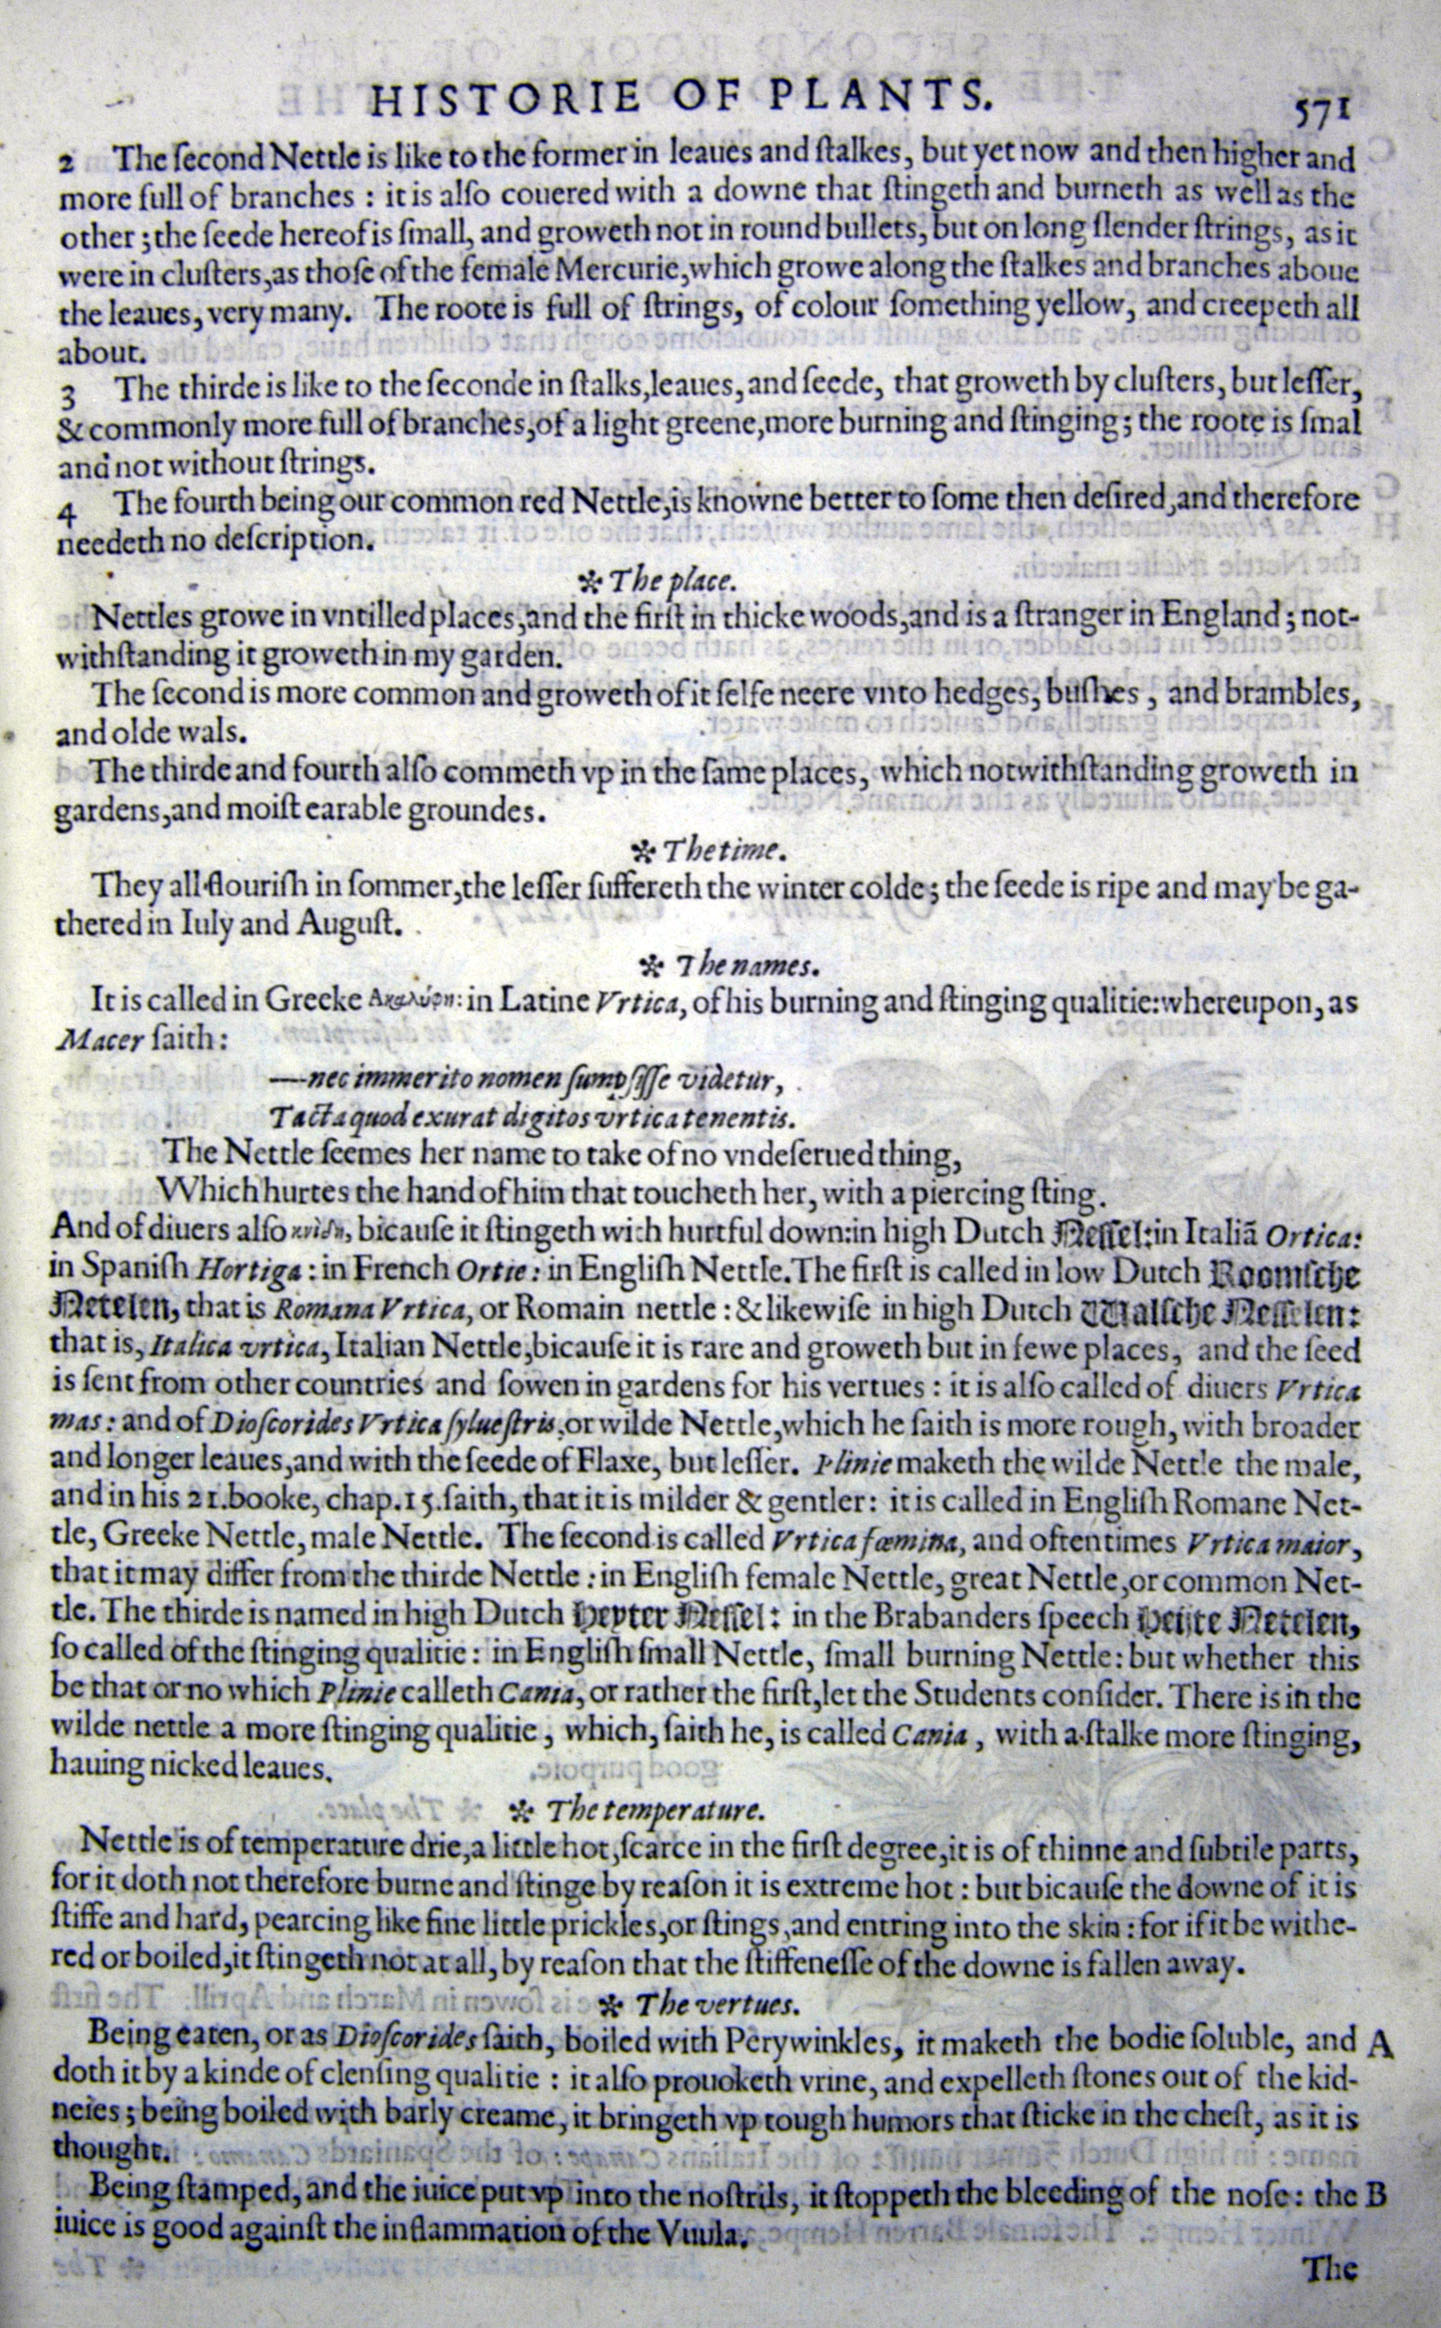 HISTORIE OF PLANTS.
571
2 The ſecond Nettle is like to the former in leaues and ſtalkes, but yet now and then higher and
more full of branches : it is alſo couered with a downe that ſtingeth and burneth as well as the
other ; the ſeede hereof is ſmall, and groweth not in round bullets, but on long ſlender ſtrings, as it
were in cluſters, as thoſe of the female Mercurie, which growe along the ſtalkes and branches aboue
the leaues, very many. The roote is full of ſtrings, of colour ſomething yellow, and creepeth all
about.
3 The thirde is like to the ſeconde in ſtalks, leaues, and ſeede, that groweth by cluſters, but leſſer,
& commonly more full of branches, of a light greene, more burning and ſtinging ; the roote is ſmal
and not without ſtrings.
4 The fourth being our common red Nettle, is knowne better to ſome then deſired, and therefore
needeth no deſcription.
✻ The place.
Nettles growe in vntilled places, and the firſt in thicke woods, and is a ſtranger in England ; not-
withſtanding it groweth in my garden.
The ſecond is more common and groweth of it ſelfe neere vnto hedges, buſhes , and brambles,
and olde wals.
The thirde and fourth alſo commeth vp in the ſame places, which notwithſtanding groweth in
gardens, and moiſt earable groundes.
✻ The time.
They all flouriſh in ſommer, the leſſer ſuffereth the winter colde ; the ſeede is ripe and may be ga-
thered in Iuly and Auguſt.
✻ The names.
It is called in Greeke Ακαλύφη : in Latine Vrtica, of his burning and ſtinging qualitie : whereupon, as
Macer ſaith :
—nec immerito nomen ſumpſiſſe videtur,
Tacta quod exurat digitos vrtica tenentis.
The Nettle ſeemes her name to take of no vndeſerued thing,
Which hurtes the hand of him that toucheth her, with a piercing ſting.
And of diuers alſo κνίδη, bicauſe it ſtingeth with hurtful down : in high Dutch Neſſel : in Italiã Ortica :
in Spaniſh Hortiga : in French Ortie : in Engliſh Nettle. The firſt is called in low Dutch Roomſche
Netelen, that is Romana Vrtica, or Romain nettle : & likewiſe in high Dutch Walſche Neſſelen :
that is, Italica vrtica, Italian Nettle, bicauſe it is rare and groweth but in fewe places, and the ſeed
is ſent from other countries and ſowen in gardens for his vertues : it is alſo called of diuers Vrtica
mas : and of Dioſcorides Vrtica ſylueſtris, or wilde Nettle, which he ſaith is more rough, with broader
and longer leaues, and with the ſeede of Flaxe, but leſſer. Plinie maketh the wilde Nettle the male,
and in his 21. booke, chap. 15. ſaith, that it is milder & gentler : it is called in Engliſh Romane Net-
tle, Greeke Nettle, male Nettle. The ſecond is called Vrtica fœmina, and oftentimes Vrtica maior,
that it may differ from the thirde Nettle : in Engliſh female Nettle, great Nettle, or common Net-
tle. The thirde is named in high Dutch Heyter Neſſel : in the Brabanders ſpeech Heite Netelen,
ſo called of the ſtinging qualitie : in Engliſh ſmall Nettle, ſmall burning Nettle : but whether this
be that or no which Plinie calleth Cania, or rather the firſt, let the Students conſider. There is in the
wilde nettle a more ſtinging qualitie , which, ſaith he, is called Cania , with a ſtalke more ſtinging,
hauing nicked leaues.
✻ The temperature.
Nettle is of temperature drie, a little hot, ſcarce in the firſt degree, it is of thinne and ſubtile parts,
for it doth not therefore burne and ſtinge by reaſon it is extreme hot : but bicauſe the downe of it is
ſtiffe and hard, pearcing like fine little prickles, or ſtings, and entring into the skin : for if it be withe-
red or boiled, it ſtingeth not at all, by reaſon that the ſtiffeneſſe of the downe is fallen away.
✻ The vertues.
Being eaten, or as Dioſcorides ſaith, boiled with Perywinkles, it maketh the bodie ſoluble, and A
doth it by a kinde of clenſing qualitie : it alſo prouoketh vrine, and expelleth ſtones out of the kid-
neies ; being boiled with barly creame, it bringeth vp tough humors that ſticke in the cheſt, as it is
thought.
Being ſtamped, and the iuice put vp into the noſtrils, it ſtoppeth the bleeding of the noſe : the B
iuice is good againſt the inflammation of the Vuula.
The